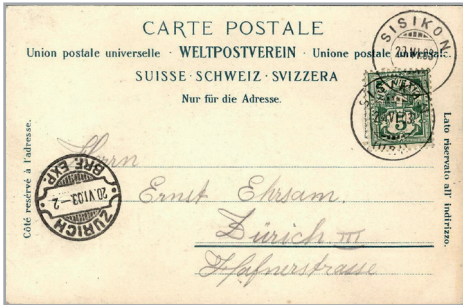 CARTE POSTALE
Union postale universelle · WELTPOSTVEREIN · Unione postale universale.
SUISSE · SCHWEIZ · SVIZZERA
Nur für die Adresse.
SISIKON
20.VI.03
SISIKON
5
Côté réservé à l'adresse.
Lato riservato all' indirizzo.
ZÜRICH
20.VI.03-2
BRF. EXP.
Herrn
Ernst Ehrsam.
Zürich III
Hafnerstrasse